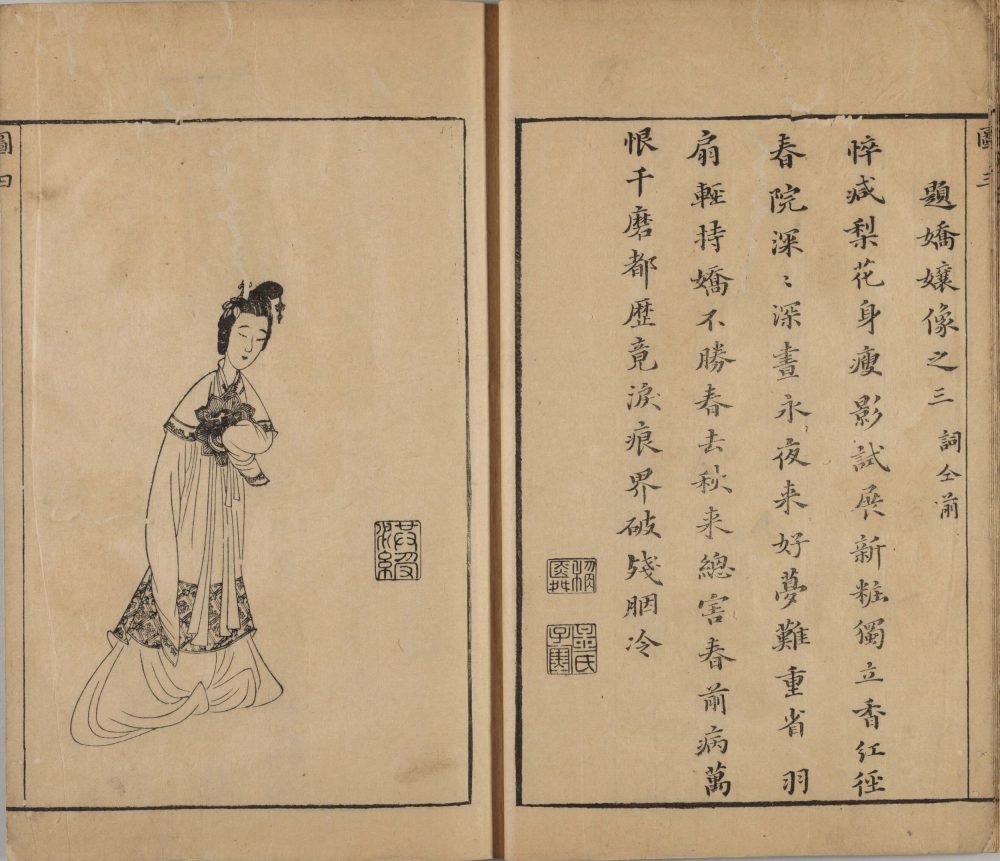 圖三
題嬌孃像之三 詞仝前
悴减梨花身瘦影試展新粧獨立香紅徑
春院深〻深晝永夜来好夢難重省羽
扇輕持嬌不勝春去秋来總害春前病萬
恨千磨都歷竟淚痕界破殘胭冷
稱舜
孟氏子塞
圖四